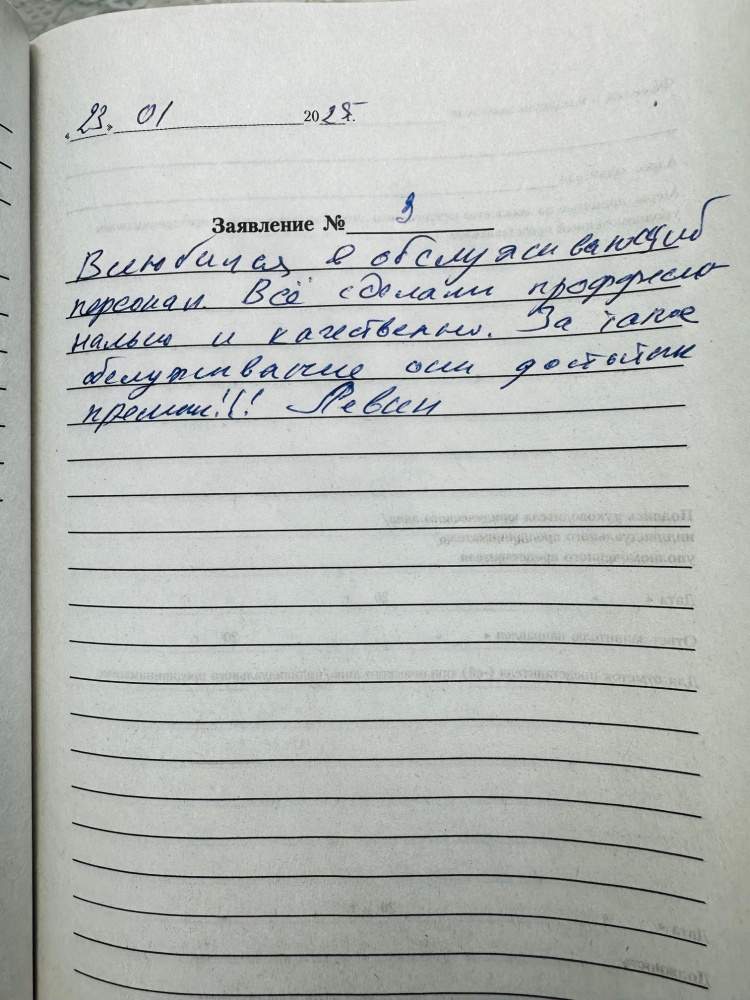 «23» 01 2025 г.
Заявление № 3
Влюбился в обслуживающий
персонал. Всё сделали проффесио
нально и качественно. За такое
обслуживание они достойны
премии!!! Левин